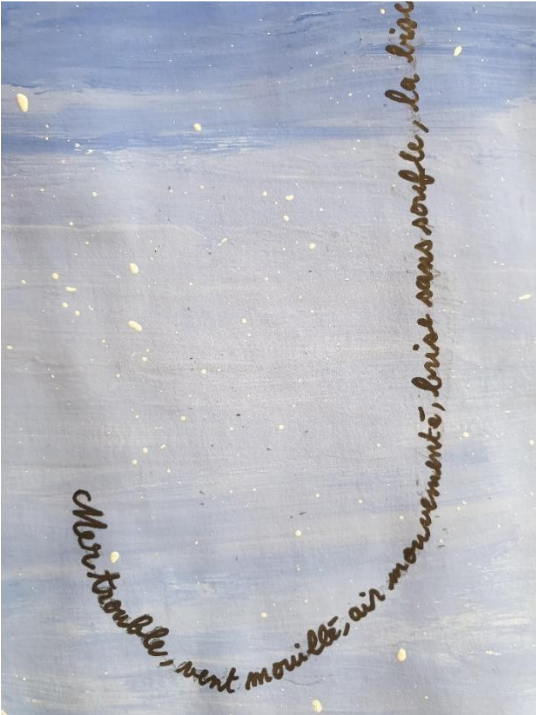 Mer trouble, vent mouillé, air mouvementé, brise sans soufle, la bise